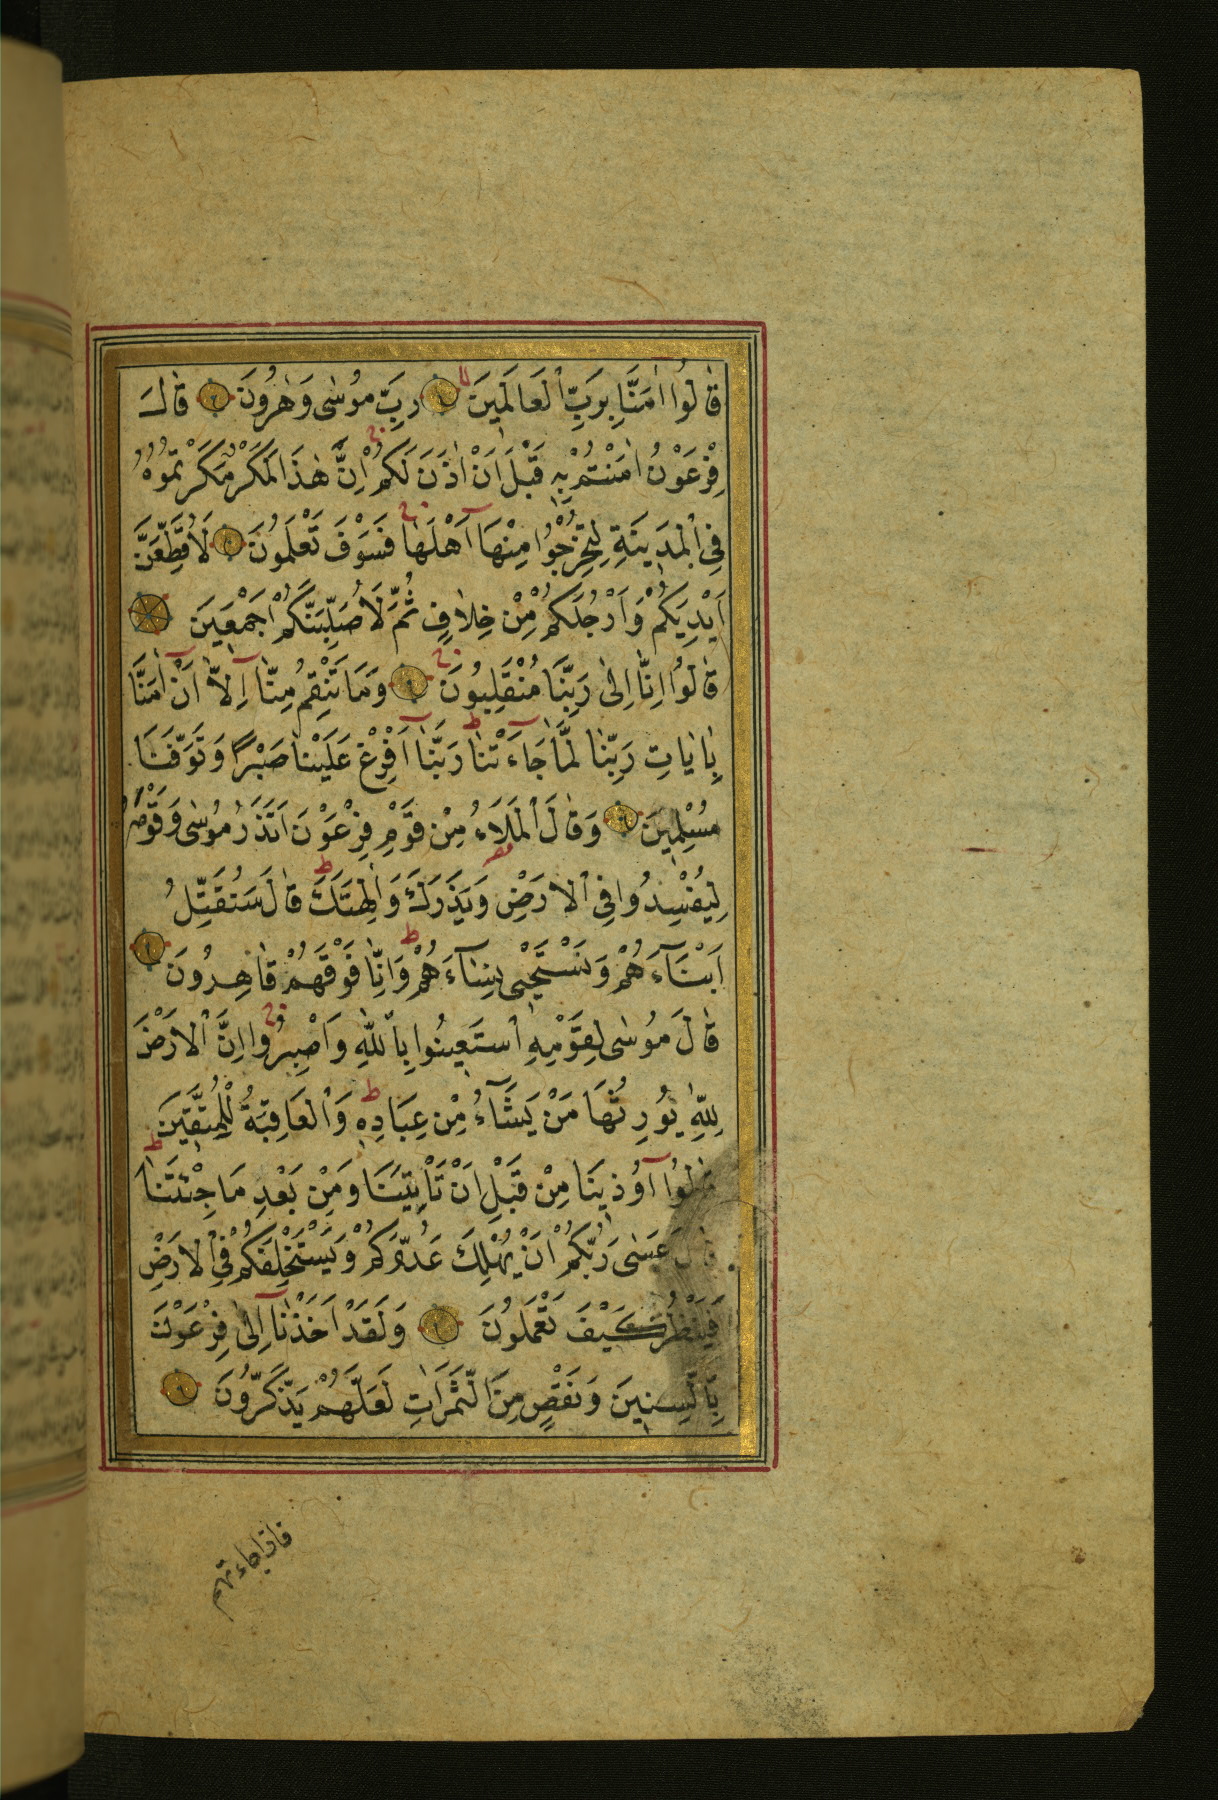 قَالُوا اٰمَنَّا بِرَبِّ الْعَالَمِينَ رَبِّ مُوسٰى وَهٰرُونَ قَالَ
فِرْعَوْنُ اٰمَنْتُمْ بِهٖ قَبْلَ اَنْ اٰذَنَ لَكُمْ اِنَّ هٰذَا لَمَكْرٌ مَكَرْتُمُوهُ
فِي الْمَدِينَةِ لِتُخْرِجُوا مِنْهَا اَهْلَهَا فَسَوْفَ تَعْلَمُونَ لَاُقَطِّعَنَّ
اَيْدِيَكُمْ وَاَرْجُلَكُمْ مِنْ خِلَافٍ ثُمَّ لَاُصَلِّبَنَّكُمْ اَجْمَعِينَ
قَالُوا اِنَّا اِلٰى رَبِّنَا مُنْقَلِبُونَ وَمَا تَنْقِمُ مِنَّا اِلَّا اَنْ اٰمَنَّا
بِاٰيَاتِ رَبِّنَا لَمَّا جَاءَتْنَا رَبَّنَا اَفْرِغْ عَلَيْنَا صَبْرًا وَتَوَفَّنَا
مُسْلِمِينَ وَقَالَ الْمَلَاءُ مِنْ قَوْمِ فِرْعَوْنَ اَتَذَرُ مُوسٰى وَقَوْمَهُ
لِيُفْسِدُوا فِي الْاَرْضِ وَيَذَرَكَ وَاٰلِهَتَكَ قَالَ سَنُقَتِّلُ
اَبْنَاءَهُمْ وَنَسْتَحْيٖى نِسَاءَهُمْ وَاِنَّا فَوْقَهُمْ قَاهِرُونَ
قَالَ مُوسٰى لِقَوْمِهِ اسْتَعِينُوا بِاللّٰهِ وَاصْبِرُوا اِنَّ الْاَرْضَ
لِلّٰهِ يُورِثُهَا مَنْ يَشَاءُ مِنْ عِبَادِهٖ وَالْعَاقِبَةُ لِلْمُتَّقِينَ
قَالُوا اُوذِينَا مِنْ قَبْلِ اَنْ تَأْتِيَنَا وَمِنْ بَعْدِ مَا جِئْتَنَا
قَالَ عَسٰى رَبُّكُمْ اَنْ يُهْلِكَ عَدُوَّكُمْ وَيَسْتَخْلِفَكُمْ فِي الْاَرْضِ
فَيَنْظُرَ كَيْفَ تَعْمَلُونَ وَلَقَدْ اَخَذْنَا اٰلَ فِرْعَوْنَ
بِالسِّنِينَ وَنَقْصٍ مِنَ الثَّمَرَاتِ لَعَلَّهُمْ يَذَّكَّرُونَ
فاذا جاءتهم